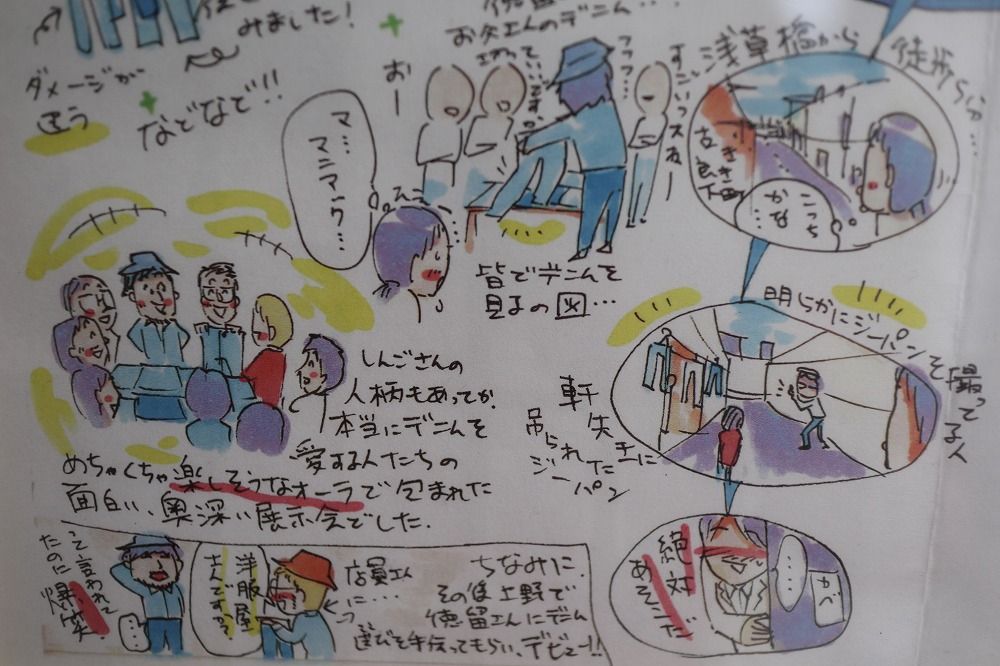 みました!
ダメージが
違う
などなど!!
お客さんのデニム…
フフフ…
おー
すごいっスねー
マ…
マニアック…
皆でデニムを
見るの図…
浅草橋から
徒歩5分…
こっち
かな…
明らかにジーパンを
撮ってる人
軒先に
吊られた
ジーパン
絶対
あそこだ
しんごさんの
人柄もあってか
本当にデニムを
愛する人たちの
めちゃくちゃ楽しそうなオーラで包まれた
面白い、奥深い展示会でした.
ちなみに、
その後上野で
徳留さんにデニム
選びを手伝ってもらい、デビュー!!
店員さん
に…
洋服屋
さんですか?
って言われて
たのに
爆笑